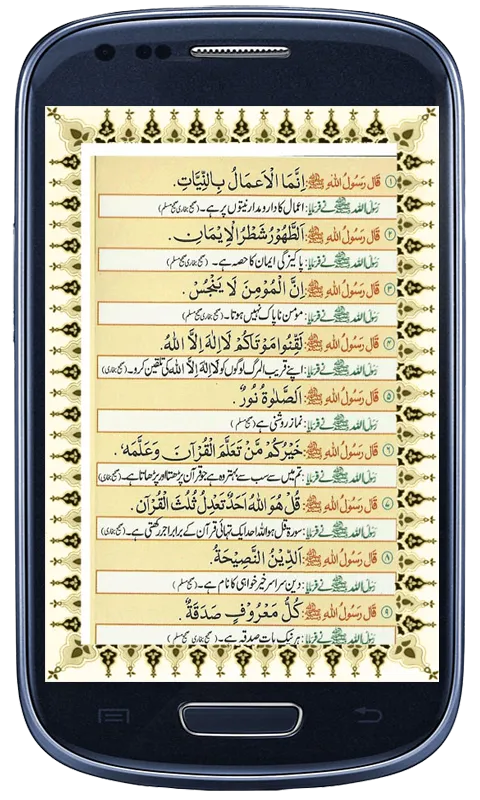 ① قَالَ رَسُولُ اللهِ ﷺ: اِنَّمَا الْاَعمَالُ بِالنِّیَّاتِ.
رسُول اللہ ﷺ نے فرمایا: اعمال کا دارومدار نیتوں پر ہے۔ (صحیح بخاری صحیح مسلم)
② قَالَ رَسُولُ اللهِ ﷺ: اَلطَّهُوْرُ شَطْرُ الْاِیْمَانِ.
رسُول اللہ ﷺ نے فرمایا: پاکیزگی ایمان کا حصہ ہے۔ (صحیح بخاری صحیح مسلم)
③ قَالَ رَسُولُ اللهِ ﷺ: اِنَّ الْمُؤْمِنَ لَا یَنْجُسُ.
رسُول اللہ ﷺ نے فرمایا: مومن ناپاک نہیں ہوتا۔ (صحیح بخاری صحیح مسلم)
④ قَالَ رَسُولُ اللهِ ﷺ: لَقِّنُوا مَوْتَاکُمْ لَااِلٰهَ اِلَّا اللهُ.
رسُول اللہ ﷺ نے فرمایا: اپنے قریب المرگ لوگوں کو لَااِلٰهَ اِلَّا الله کی تلقین کرو۔ (صحیح بخاری)
⑤ قَالَ رَسُولُ اللهِ ﷺ: اَلصَّلٰوةُ نُورٌ.
رسُول اللہ ﷺ نے فرمایا: نماز روشنی ہے (صحیح مسلم)
⑥ قَالَ رَسُولُ اللهِ ﷺ: خَیْرُکُمْ مَّنْ تَعَلَّمَ الْقُرْآنَ وَعَلَّمَهٗ.
رسُول اللہ ﷺ نے فرمایا: تم میں سے سب سے بہتر وہ ہے جو قرآن پڑھتا اور پڑھاتا ہے۔ (صحیح بخاری)
⑦ قَالَ رَسُولُ اللهِ ﷺ: قُلْ هُوَ اللهُ اَحَدٌ تَعْدِلُ ثُلُثَ الْقُرْآنِ.
رسُول اللہ ﷺ نے فرمایا: سورة قل ہواللہ احد ایک تہائی قرآن کے برابر اجر رکھتی ہے۔ (صحیح بخاری)
⑧ قَالَ رَسُولُ اللهِ ﷺ: اَلدِّیْنُ النَّصِیْحَةُ.
رسُول اللہ ﷺ نے فرمایا: دین سراسر خیر خواہی کا نام ہے۔ (صحیح مسلم)
⑨ قَالَ رَسُولُ اللهِ ﷺ: کُلُّ مَعْرُوْفٍ صَدَقَةٌ.
رسُول اللہ ﷺ نے فرمایا: ہر نیک بات صدقہ ہے۔ (صحیح بخاری صحیح مسلم)